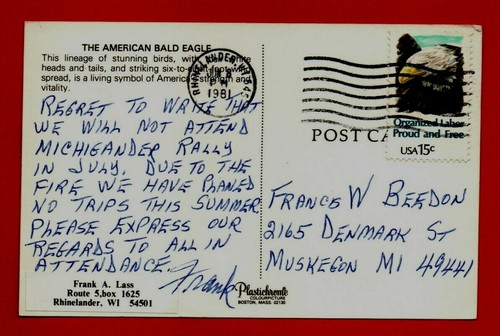 THE AMERICAN BALD EAGLE
This lineage of stunning birds, with white
heads and tails, and striking six-to-eight-foot wing
spread, is a living symbol of America's strength and
vitality.
REGRET TO WRITE THAT
WE WILL NOT ATTEND
MICHIGANDER RALLY
IN JULY. DUE TO THE
FIRE WE HAVE PLANED
NO TRIPS THIS SUMMER.
PLEASE EXPRESS OUR
REGARDS TO ALL IN
ATTENDANCE.
Frank
Frank A. Lass
Route 5,box 1625
Rhinelander, WI 54501
Plastichrome
COLOURPICTURE
BOSTON, MASS. 02130
RHINELANDER, WI
1981
POST CA
Organized Labor
Proud and Free
USA 15c
FRANCIS W BEEDON
2165 DENMARK ST
MUSKEGON MI 49441